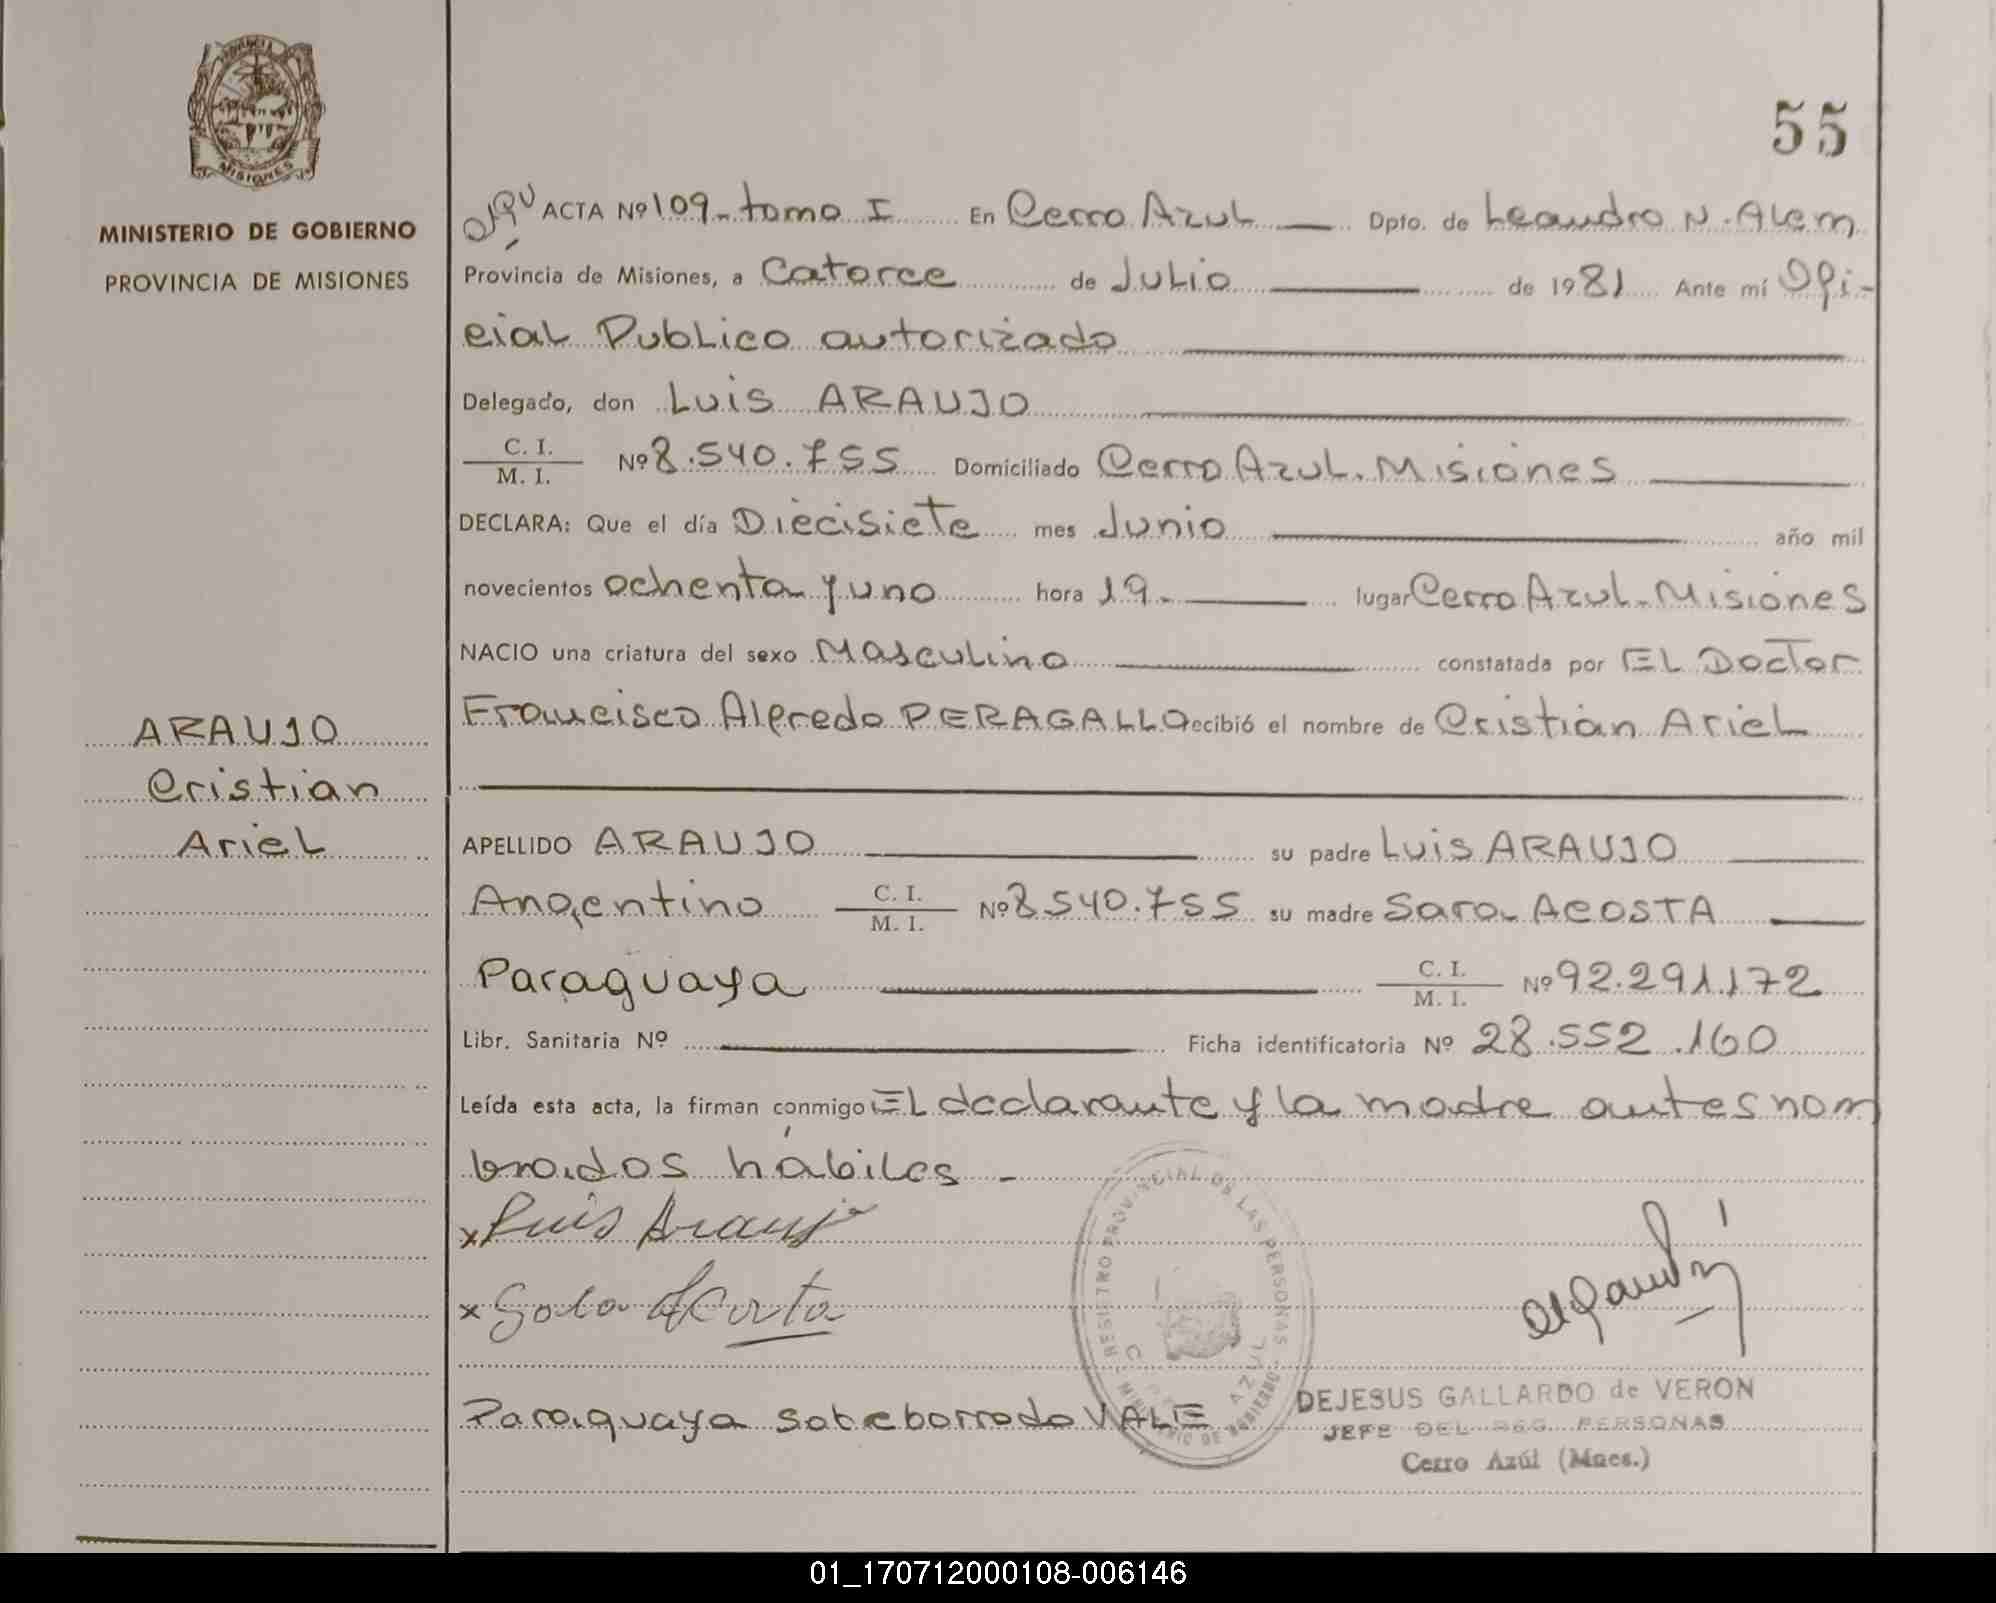 55
MISIONES
MINISTERIO DE GOBIERNO
PROVINCIA DE MISIONES
ARAUJO
Cristian
Ariel
ACTA Nº 109-tomo I En Cerro Azul Dpto. de Leandro N. Alem
Provincia de Misiones, a Catorce de Julio de 1981 Ante mí Ofi-
cial Publico autorizado
Delegado, don Luis ARAUJO
C. I.
M. I. Nº 8.540.755 Domiciliado Cerro Azul. Misiones
DECLARA: Que el día Diecisiete mes Junio año mil
novecientos ochenta y uno hora 19. lugar Cerro Azul. Misiones
NACIO una criatura del sexo Masculino constatada por EL Doctor
Francisco Alfredo PERAGALLO recibió el nombre de Cristian Ariel
APELLIDO ARAUJO su padre Luis ARAUJO
Argentino C. I.
M. I. Nº 8.540.755 su madre Sara ACOSTA
Paraguaya C. I.
M. I. Nº 92.291.172
Libr. Sanitaria Nº Ficha identificatoria Nº 28.552.160
Leída esta acta, la firman conmigo EL declarante y la madre antes nom
brados hábiles -
x Luis Araujo
x Sara Acosta
REGISTRO PROVINCIAL DE LAS PERSONAS
MINISTERIO DE GOBIERNO
AZUL
Paraguaya sobreborrado VALE
DEJESUS GALLARDO de VERON
JEFE DEL REG. PERSONAS
Cerro Azúl (Mnes.)
01_170712000108-006146